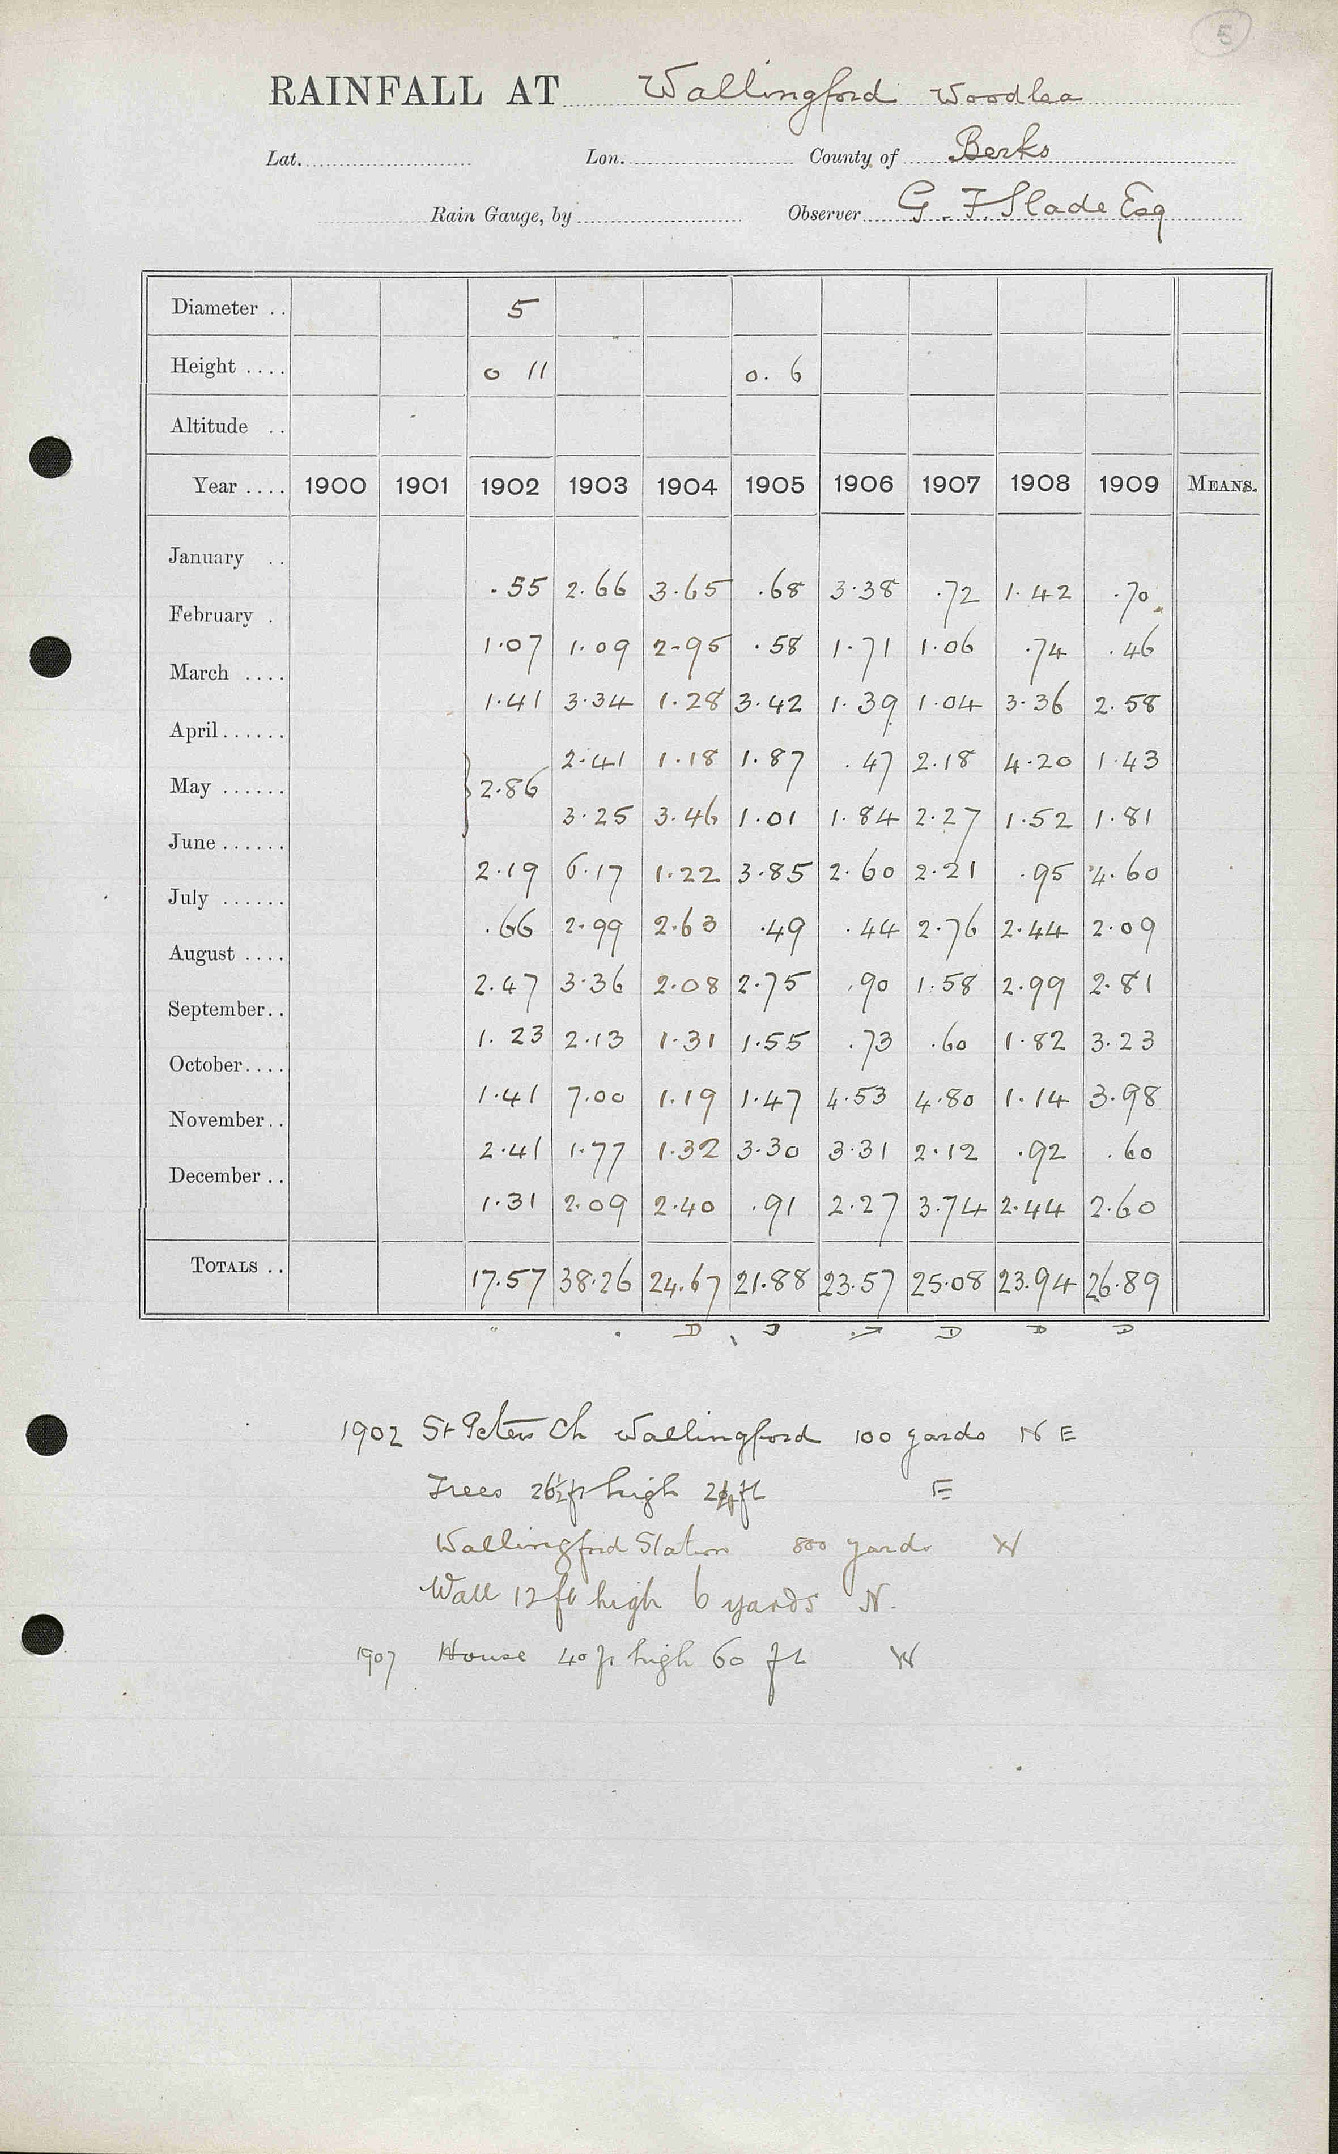 5
RAINFALL AT Wallingford Woodlea
Lat. Lon. County of Berks
Rain Gauge, by Observer G. F. Slade Esq
Diameter .. 5
Height .... 0 11 0. 6
Altitude ..
Year .... 1900 1901 1902 1903 1904 1905 1906 1907 1908 1909 MEANS.
January .. .55 2.66 3.65 .68 3.38 .72 1.42 .70
February . 1.07 1.09 2.95 .58 1.71 1.06 .74 .46
March .... 1.41 3.34 1.28 3.42 1.39 1.04 3.36 2.58
April...... 2.41 1.18 1.87 .47 2.18 4.20 1.43
May ...... } 2.86 3.25 3.46 1.01 1.84 2.27 1.52 1.81
June ...... 2.19 6.17 1.22 3.85 2.60 2.21 .95 4.60
July ...... .66 2.99 2.63 .49 .44 2.76 2.44 2.09
August .... 2.47 3.36 2.08 2.75 .90 1.58 2.99 2.81
September.. 1.23 2.13 1.31 1.55 .73 .60 1.82 3.23
October.... 1.41 7.00 1.19 1.47 4.53 4.80 1.14 3.98
November.. 2.41 1.77 1.32 3.30 3.31 2.12 .92 .60
December .. 1.31 2.09 2.40 .91 2.27 3.74 2.44 2.60
TOTALS .. 17.57 38.26 24.67 21.88 23.57 25.08 23.94 26.89
D D D D
1902 St Peters Ch Wallingford 100 yards N E
Trees 26½ ft high ft E
Wallingford Station 800 yards W
Wall 12 ft high 6 yards N.
1907 House 40 ft high 60 ft W